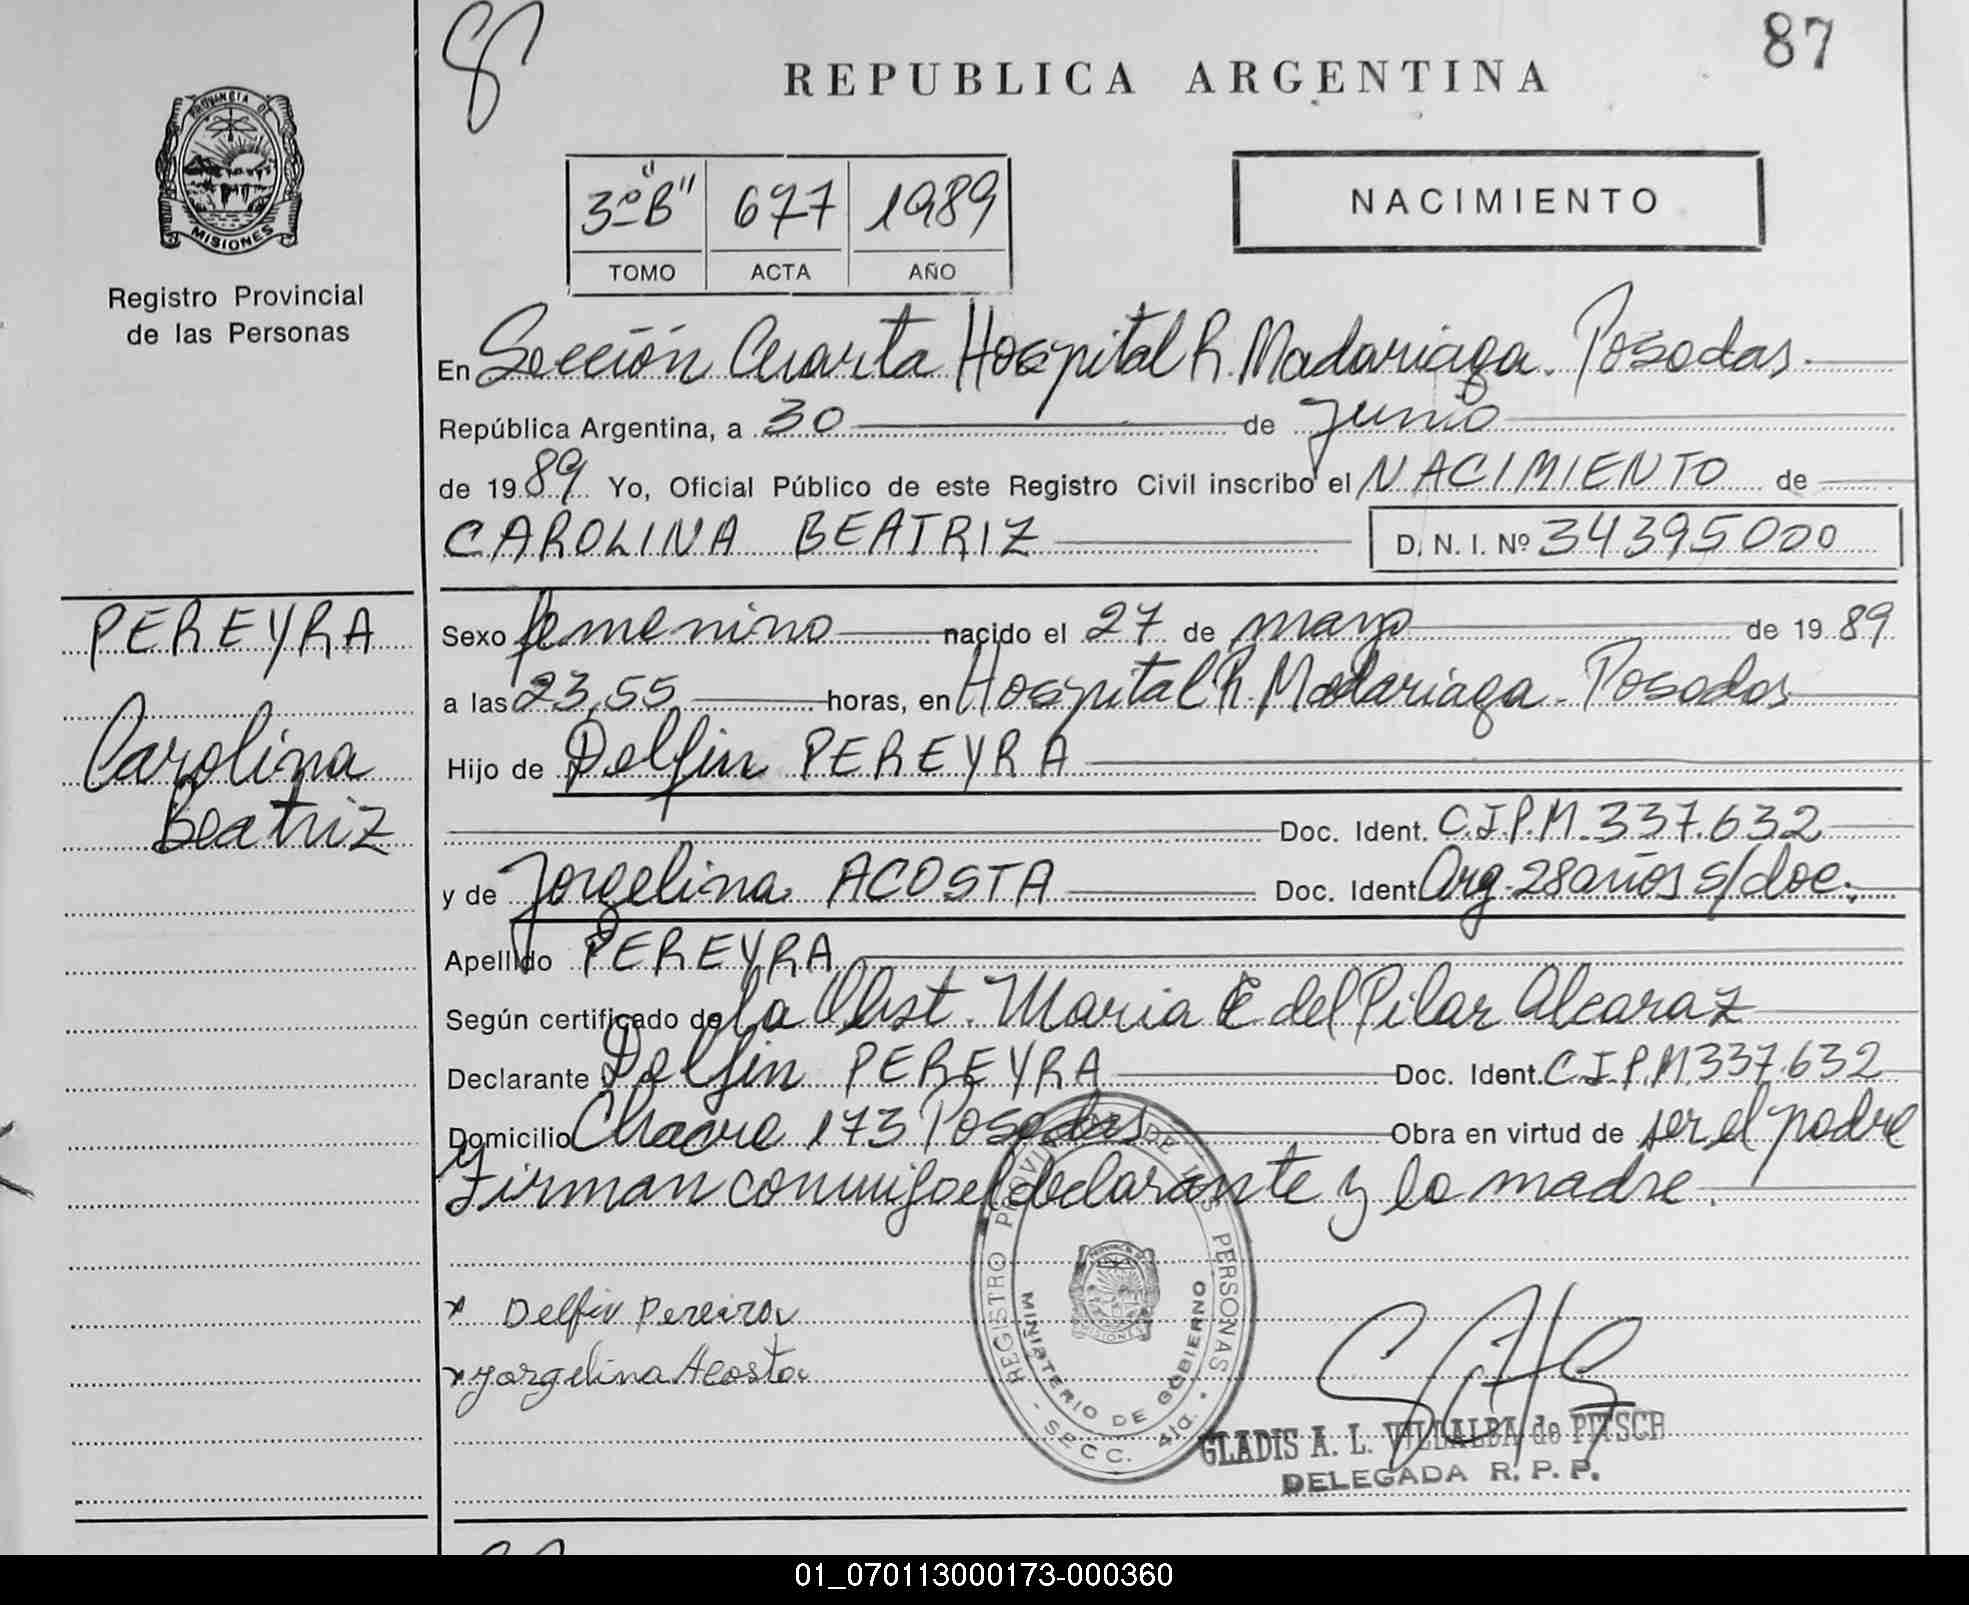 87
REPUBLICA ARGENTINA
PROVINCIA DE
MISIONES
Registro Provincial
de las Personas
3º "B" 677 1989
TOMO ACTA AÑO
NACIMIENTO
En Sección Cuarta Hospital R. Madariaga. Posadas.
República Argentina, a 30 de junio
de 1989 Yo, Oficial Público de este Registro Civil inscribo el NACIMIENTO de
CAROLINA BEATRIZ D. N. I. Nº 34395000
PEREYRA
Carolina
Beatriz
Sexo femenino nacido el 27 de mayo de 1989
a las 23,55 horas, en Hospital R. Madariaga. Posadas
Hijo de Delfin PEREYRA
Doc. Ident. C.I.P.M. 337.632
y de Jorgelina ACOSTA Doc. Ident. Arg. 28 años s/doc.
Apellido PEREYRA
Según certificado de la Obst. Maria E del Pilar Alcaraz
Declarante Delfin PEREYRA Doc. Ident. C.I.P.M. 337.632
Domicilio 173 Posadas Obra en virtud de ser el padre
Firman conmigo el declarante y la madre.
x Delfin Pereira
x Jorgelina Acosta
REGISTRO PROVINCIAL DE LAS PERSONAS
MINISTERIO DE GOBIERNO
SECC. 4ta.
MISIONES
GLADIS A. L. VILLALBA de PITSCH
DELEGADA R. P. P.
01_070113000173-000360